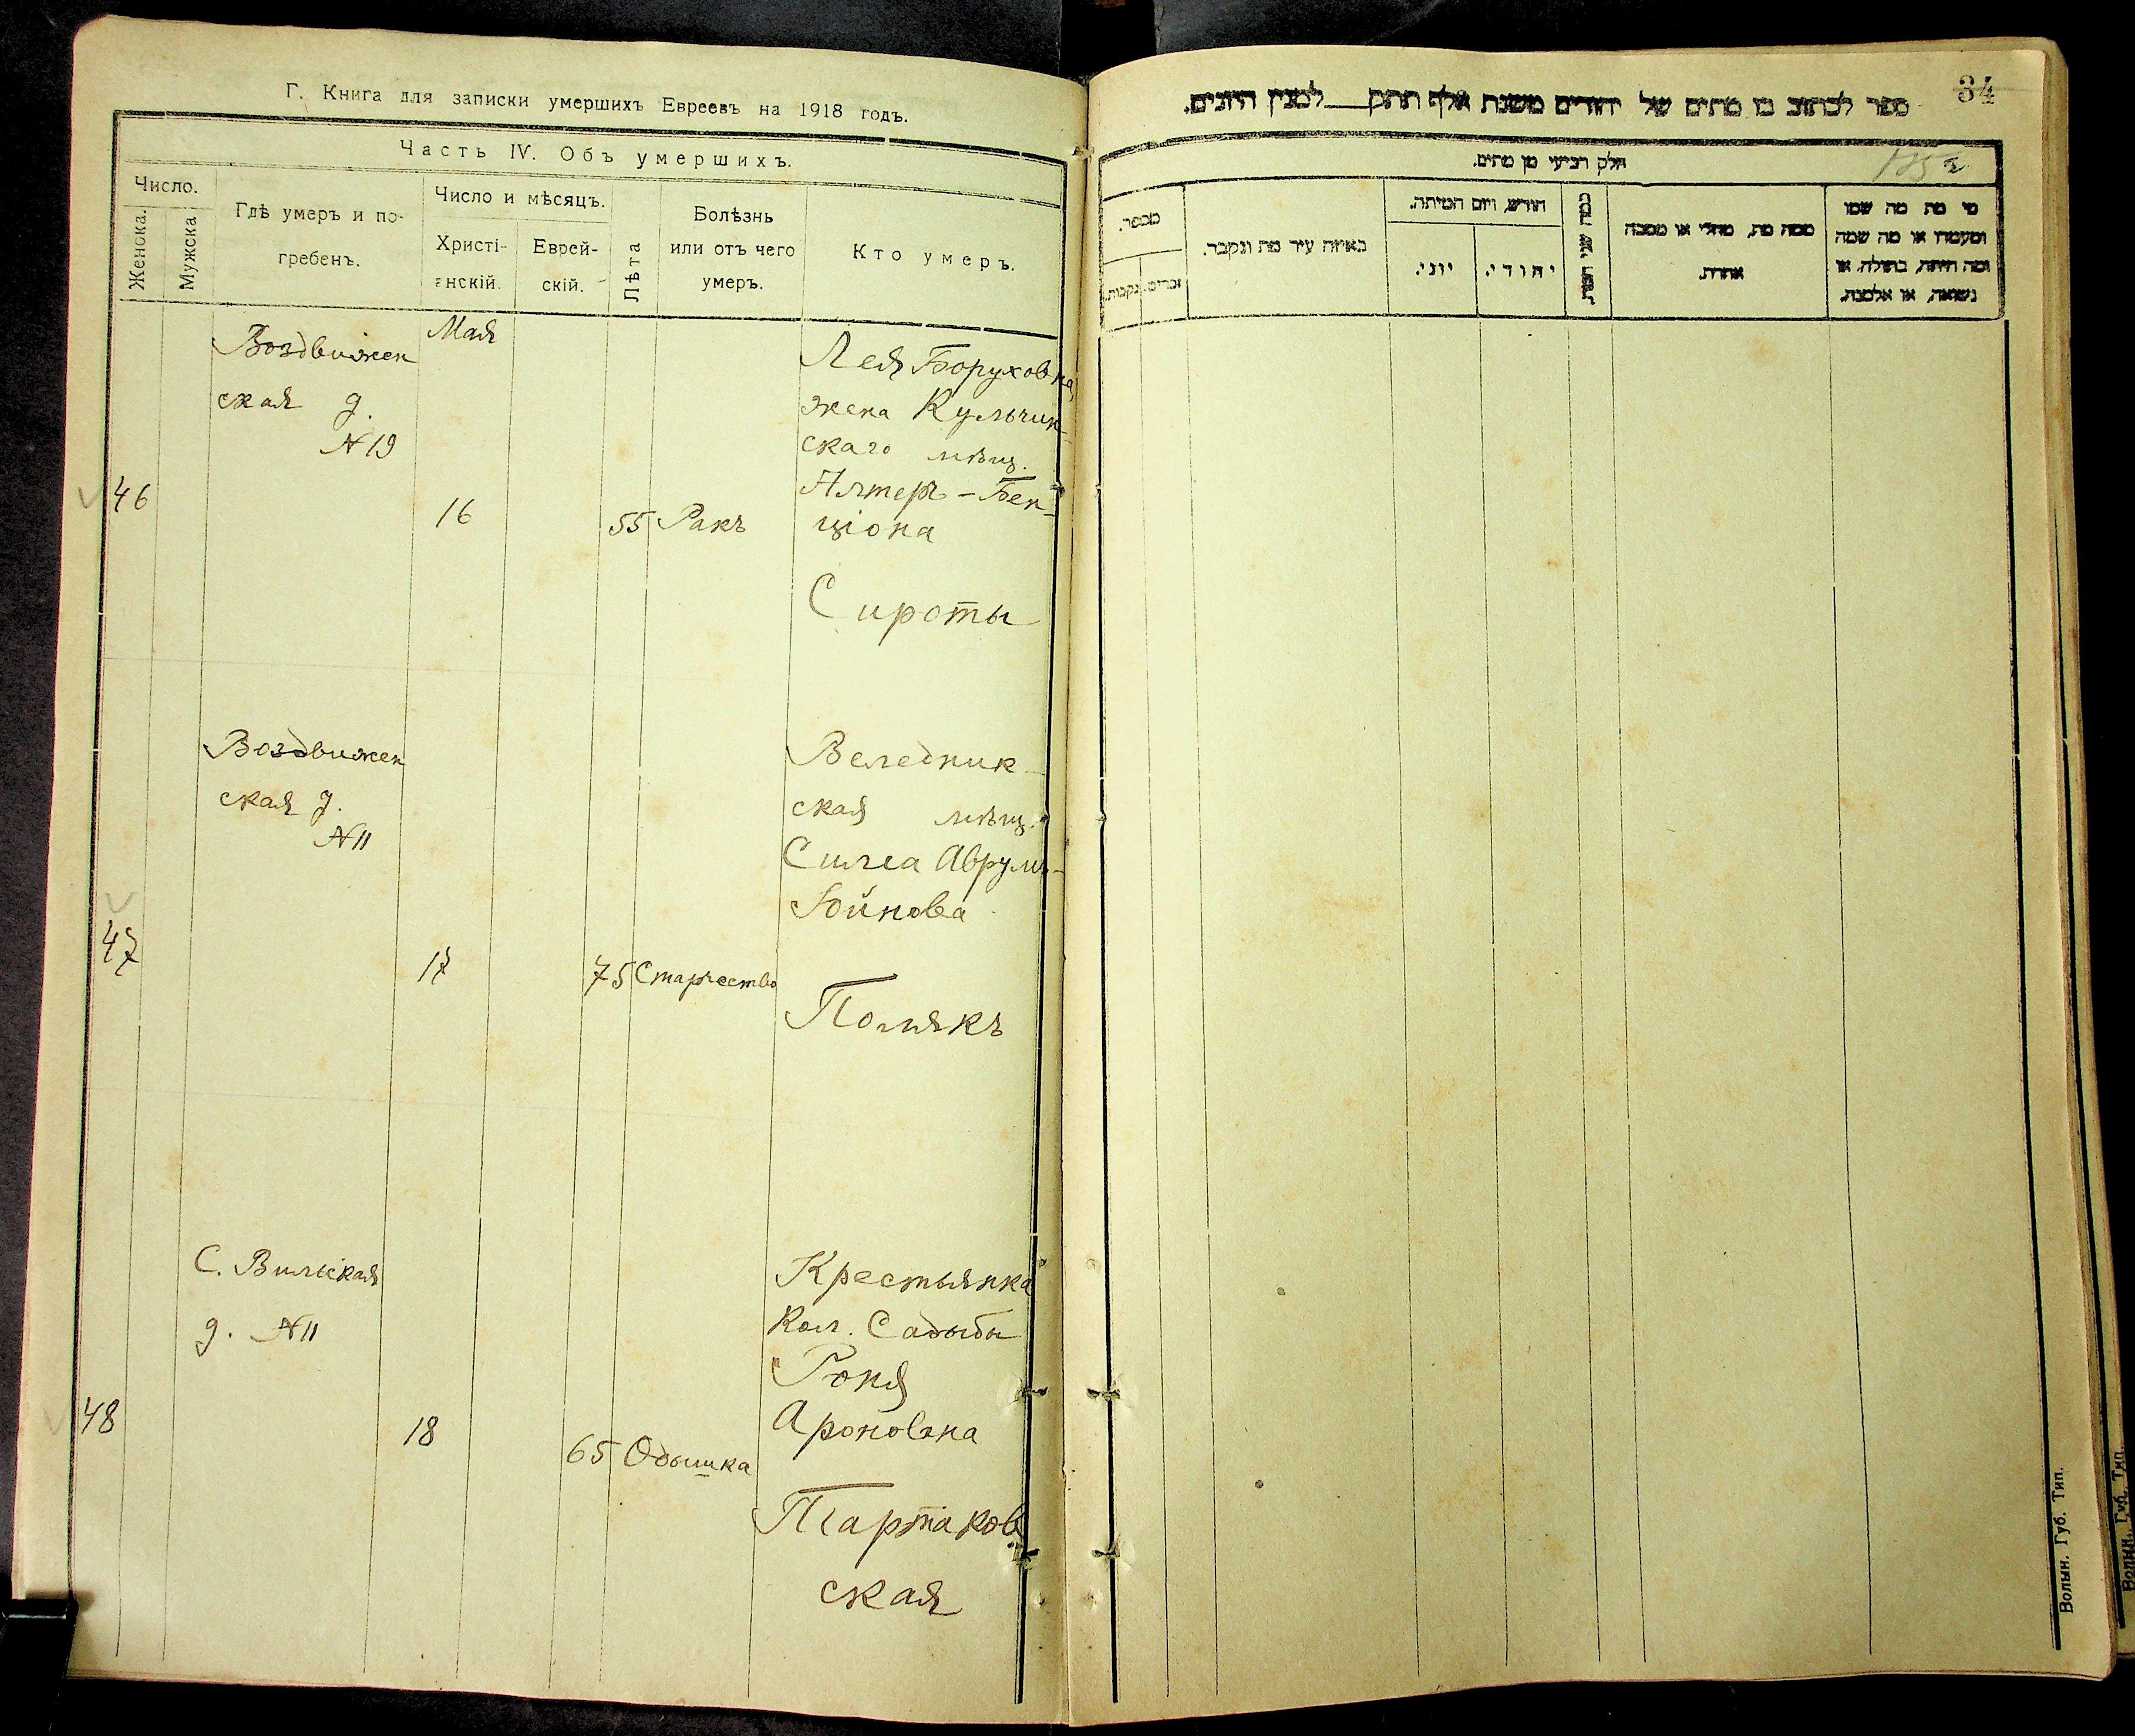 Г. Книга для записки умершихъ Евреевъ на 1918 годъ.
Часть IV. Объ умершихъ.
Число.
Женска.
Мужска
Гдѣ умеръ и по-
гребенъ.
Число и мѣсяцъ.
Христі-
анскій.
Еврей-
скій.
Лѣта
Болѣзнь
или отъ чего
умеръ.
Кто умеръ.
Мая
Воздвижен
ская д.
№ 19
46
16
55
Ракъ
Лея Боруховна
жена Кульчин-
скаго мѣщ.
Алтеръ-Бен-
ціона
Сироты
Воздвижен
ская д.
№ 11
47
17
75
Старчество
Веледник-
ская мѣщ.
Симa Аврумъ-
Гойнова
Полякъ
С. Вильская
д. № 11
48
18
65
Одышка
Крестьянка
Кол. Садыбы
Роня
Ароновна
Тартаков
ская
34
ספר לכתוב בו מתים של יהודים משנת אלף תתק___למנין היונים.
חלק רביעי מן מתים.
מספר.
זכרים.
נקבות.
באיזה עיר מת ונקבר.
חודש, ויום המיתה.
יוני.
יהודי.
כמה שני המת.
ממה מת, מחלי או מסבה
אחרת.
מי מת מה שמו
ומעמדו או מה שמה
ומה היתה, בתולה, או
נשואה, או אלמנה.
Волын. Губ. Тип.
Волын. Губ. Тип